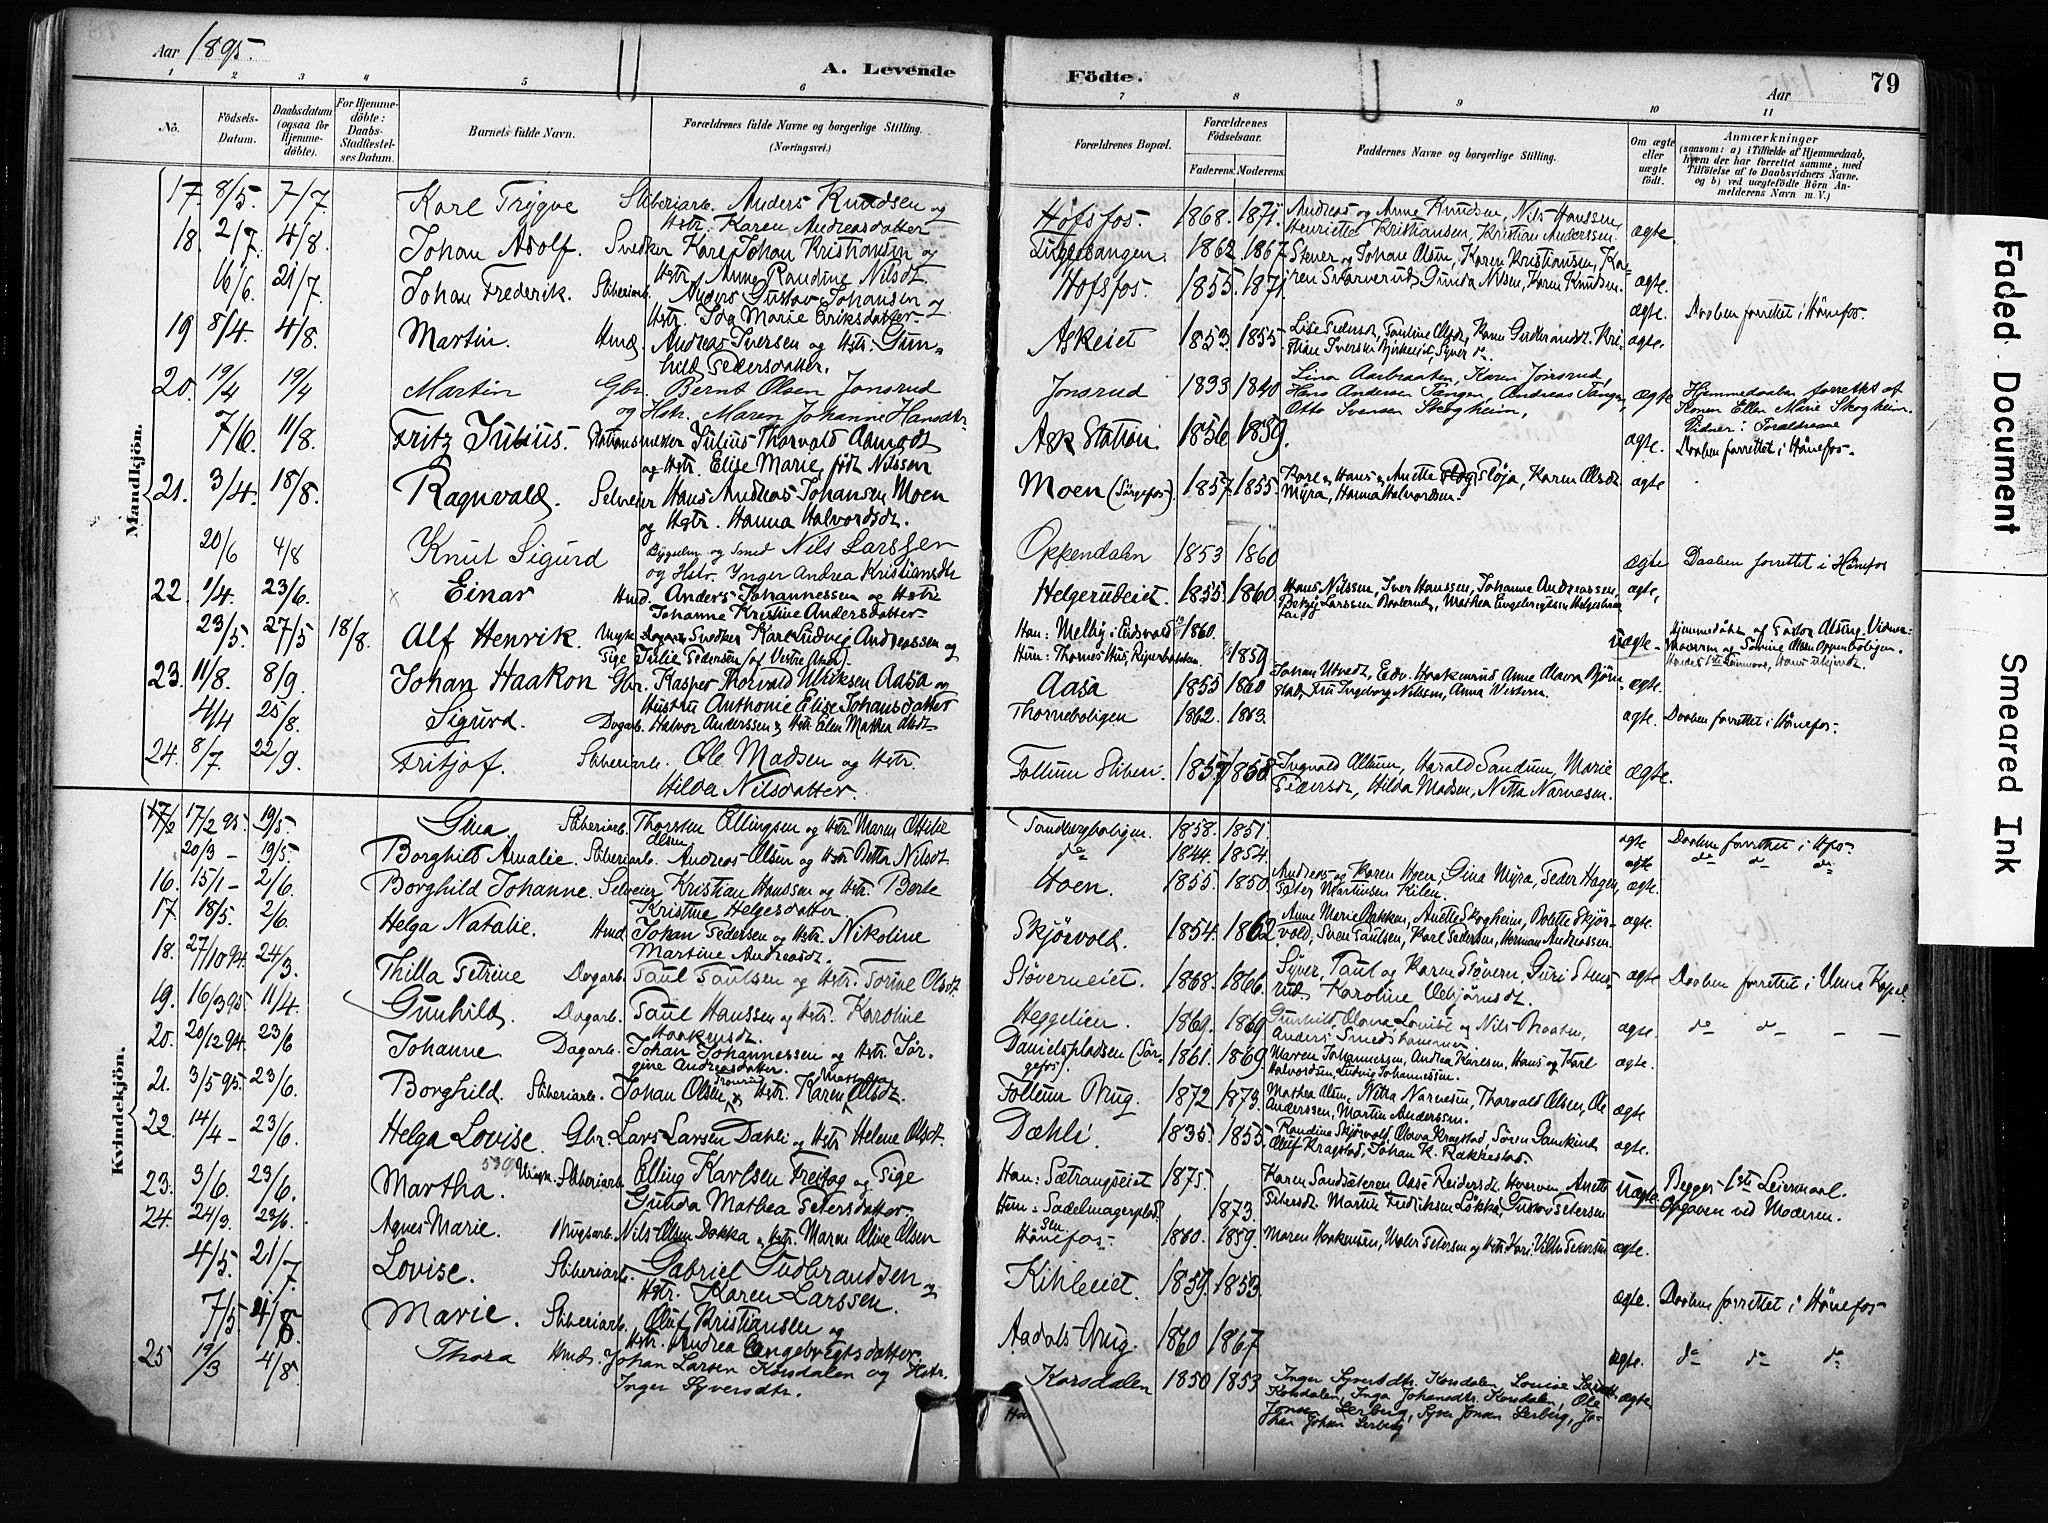 Aar 1895.
A. Levende
Födte.
79
Aar
1 2 3 4 5 6 7 8 9 10 11
No.
Födsels-
Datum.
Daabsdatum
(ogsaa for
Hjemme-
döbte).
For Hjemme-
döbte:
Daabs-
Stadfæstel-
ses Datum.
Barnets fulde Navn.
Forældrenes fulde Navne og borgerlige Stilling.
(Næringsvei.)
Forældrenes Bopæl.
Forældrenes
Födselsaar.
Faderens. Moderens.
Faddernes Navne og borgerlige Stilling.
Om ægte
eller
uægte
födt.
Anmærkninger
(saasom: a) i Tilfælde af Hjemmedaab,
hvem der har forrettet samme, med
Tilföielse af to Daabsvidners Navne,
og b) ved uægtefödte Börn An-
melderens Navn m. V.)
Mandkjön.
17. 8/5. 7/7. Karl Trygve Sliberiarb. Anders Knudsen og
Hstr. Karen Andreasdatter
Hofsfos. 1868. 1871. Andreas og Anne Knudsen, Nils Hanssen
Henriette Kristiansen, Kristian Anderssen. ægte.
18. 2/7. 4/8. Johan Adolf. Svedker Karl Johan Kristiansen og
Hstr. Anne Randine Nilsdt.
1862. 1867. Stener og Johan Olsen, Karen Kristiansen, Ka-
ren Skarverud, Gunda Nilsen, Karen Knudsen. ægte.
16/6. 21/7. Johan Frederik. Sliberiarb. Anders Gustav Johansen og
Hstr. Ida Marie Eriksdatter
Hofsfos. 1855. 1871. ægte. Daaben forrettet i Hönefos.
19 8/4. 4/8. Martin. Hmd. Andreas Iversen og Hstr. Gun-
hild Pedersdatter.
Askeiet 1853. 1855. ægte.
20. 19/4 19/4 Martin Gbr. Bernt Olsen Jonsrud
og Hstr. Maren Johanne Hansdtr
Jonsrud 1833 1840 Lina Aarbraaten, Karen Jonsrud,
Hans Andersen Tangen, Andreas Tangen,
Otto Svensen Skogheim, ægte Hjemmedaaben forrettet af
Konen Ellen Marie Skogheim.
Vidner: Forældrene
7/6. 11/8. Fritz Julius. Stationsmester Julius Thorvald Aamodt
og Hstr. Elise Marie, födt Nilssen
Ask Station 1856 1859. ægte. Daaben forrettet i Hönefos.
21. 3/4. 18/8. Ragnvald. Selveier Hans Andreas Johansen Moen
og Hstr. Hanna Halvordsdt.
Moen 1857. 1855. Karl, Hans, Anette Fløja, Karen Olsdt
Myra, Hanna Halvordsen. ægte
20/6 4/8 Knut Sigurd Smed Nils Larssen
og Hstr. Ynger Andrea Kristiansdtr
Oppendalen 1853 1860 ægte Daaben forrettet i Hönefos
22. 1/4. 23/6. Einar Hmd. Anders Johannessen og Hstr
Johanne Kristine Andersdatter
Helgerudeiet. 1855. 1860. Hans Nilssen, Iver Hanssen, Johanne Andreassen,
ægte,
23/5. 27/5 18/8. Alf Henrik. Ungk. Svedker Karl Ludvig Andreassen og
Pige Julie Pedersen (af Vestre Aker).
Han: Melby i Eidsvold 1860.
Hun: Thornes Hus, 1859. Uægte.
23. 11/8. 8/9. Johan Haakon Gbr. Kasper Thorvald Ulriksen Aasa og
Hustru Anthonie Elise Johansdatter
Aasa 1855 1860 ægte.
4/4 25/8. Sigurd. Dagarb. Halvor Anderssen og Hstr Elen Mathea Olsdt.
Thorneboligen 1862. 1863. ægte. Daaben forrettet i Hönefos.
24. 8/7. 22/9. Fritjof. Sliberiarb. Ole Madsen og Hstr.
Hilda Nilsdatter.
Follum Sliberi. 1857 1858. Ingvald Altun, Harald Sandum, Marie
Pedersdt, Hilda Madsen, Netta Narvesen. ægte.
Kvindekjön.
17/2 95. 19/5. Gina Sliberiarb. Thorsten Ellingsen og Hstr. Maren Ottilie
Olsen
Tandbergboligen. 1858. 1851. ægte Daaben forrettet i Hfos.
20/3 – 19/5. Borghild Amalie. Sliberiarb. Andreas Olsen og Hstr. Betta Nilsdt.
do 1844. 1854. ægte do do do
16. 15/1 – 2/6. Borghild Johanne. Selveier Kristian Hanssen og Hstr. Berte
Kristine Helgesdatter
Hoen. 1855. 1850. Andreas og Karen Hoen, Gina Myra, Peder Hagen,
Peter Martinsen Kilen. ægte.
17. 18/5. 2/6. Helga Natalie. Hmd. Johan Pedersen og Hstr. Nikoline
Martine Andreasdt.
Skjörvold. 1854. 1862 Anne Marie Bakken, Anette Skogheim, Bolette Skjör-
vold, Sven Paulsen, Karl Pedersen, Herman Andreassen. ægte.
18. 27/10 94. 24/3. Thilla Petrine Dagarb. Paul Paulsen og Hstr. Torine Olsdt.
Støverneiet. 1868. 1866. Syver, Paul og Karen Støvern, Guri Stens-
rud, Karoline Aebjörnsdt. ægte. Daaben forrettet i Kapel.
19. 16/3 95. 11/4. Gunhild. Dagarb. Paul Hanssen og Hstr. Karoline
Haakensdt.
Heggelien. 1869. 1869 Gunhild, Olava, Lovise og Nils Braaten,
Anders Smedshammer ægte. do do – –
20. 20/12 94. 23/6 Johanne Dagarb. Johan Johannessen og Hstr. Jör-
gine Andreasdatter.
Danielspladsen (Jör-
gefos). 1861. 1869. Maren Johannessen, Andrea Karlsen, Hans og Karl
Halvordsen, Ludvig Johannessen. ægte.
21. 3/5 95. 23/6. Borghild. Sliberiarb. Johan Olsen og Hstr. Karen Mathea Olsdt.
Follum Brug. 1872 1873. Mathea Olsen, Netta Narvesen, Thorvald Olsen, Ole
Anderssen, Martin Anderssen. ægte
22. 14/4 – 23/6. Helga Lovise. Gbr. Lars Larsen Dæhli og Hstr. Helene Olsdt.
Dæhli. 1835. 1855. Randine Skjörvold, Olava Kragstad, Sören Gamkind
Oluf Kragstad, Johan K. Rakkestad. ægte.
23. 3/6. 23/6. Martha. Ungk. Sliberiarb. Elling Karlsen Freitag og Pige
Gunda Mathea Petersdatter
Han: Sætrangseiet 1875.
Hun: Sadelmagerplad-
sen 1873. Karen Sandsæteren, Aase Reidersdt. Hverven, Anette
Petersdt. Martin Fredriksen Løkka, Gustav Petersen Uægte. Begges 1ste Leiermaal.
Opgaven ved Moderen.
24. 24/3. 23/6. Agnes Marie. Brugsarb. Nils Olsen Dokka og Hstr. Maren Oline Olsen
Hönefos. 1860. 1859. ægte.
4/5. 21/7 Lovise. Sliberiarb. Gabriel Gudbrandsen og
Hstr. Karen Larssen.
Kihleiet 1859. 1853 ægte. Daaben forrettet i Hönefos
7/5 4/8 Marie. Sliberiarb. Oluf Kristiansen og
Hstr. Andrea Engebregtsdatter
Aadals Brug. 1860 1867 ægte. do do do
25 19/3 4/8. Thora Hmd. Johan Larsen Korsdalen og Hstr.
Inger Syversdtr.
Korsdalen 1850 1853 Inger Syversdtr. Korsdalen, Lovise Larsdt
Korsdalen, Inga Johansdtr. Korsdalen, Ole
Jonsen Lerberg, Syver Jonsen Lerberg, Jo-
han Johan Lerberg ægte
Faded Document
Smeared Ink